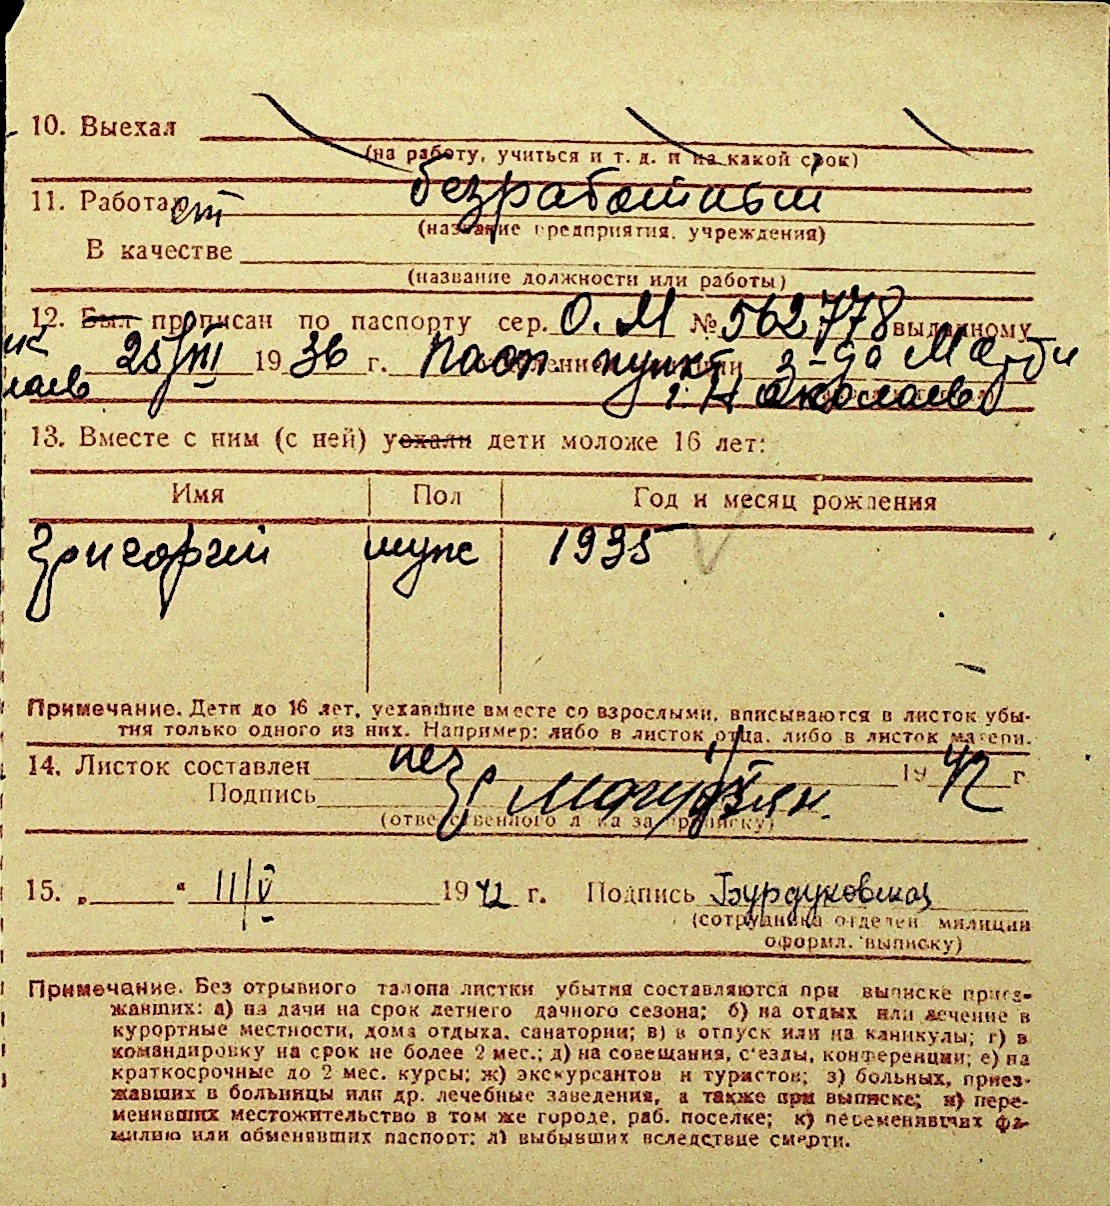 10. Выехал
(на работу, учиться и т. д. и на какой срок)
безработный
11. Работает
(название предприятия, учреждения)
В качестве
(название должности или работы)
12. Был прописан по паспорту сер. О.М № 562778 выданному
25/III 1936 г. Пасп. пункт 3-
г. Николаев
13. Вместе с ним (с ней) уехали дети моложе 16 лет:
Имя Пол Год и месяц рождения
Григорий муж 1935
Примечание. Дети до 16 лет, уехавшие вместе со взрослыми, вписываются в листок убы-
тия только одного из них. Например: либо в листок отца, либо в листок матери.
14. Листок составлен 1942 г
Подпись
(ответственного лица за прописку)
15. „ “ 11/V 1942 г. Подпись Бурдуковская
(сотрудника отделен. милиции
оформл. выписку)
Примечание. Без отрывного талона листки убытия составляются при выписке приез-
жавших: а) на дачи на срок летнего дачного сезона; б) на отдых или лечение в
курортные местности, дома отдыха, санатории; в) в отпуск или на каникулы; г) в
командировку на срок не более 2 мес.; д) на совещания, с'езды, конференции; е) на
краткосрочные до 2 мес. курсы; ж) экскурсантов и туристов; з) больных, приез-
жавших в больницы или др. лечебные заведения, а также при выписке; и) пере-
менивших местожительство в том же городе, раб. поселке; к) переменивших фа-
милию или обменявших паспорт; л) выбывших вследствие смерти.